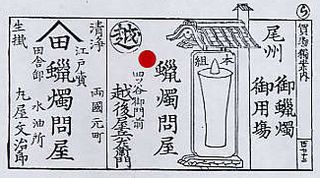 買物獨案内
尾州
御蠟燭
御用場
本
組
蠟燭問屋
四ツ谷御門前
越後屋喜兵衛門
越
清浄
江戸賣
田舎卸
生掛
蠟燭問屋
兩國元町
水油所
九屋文治郎